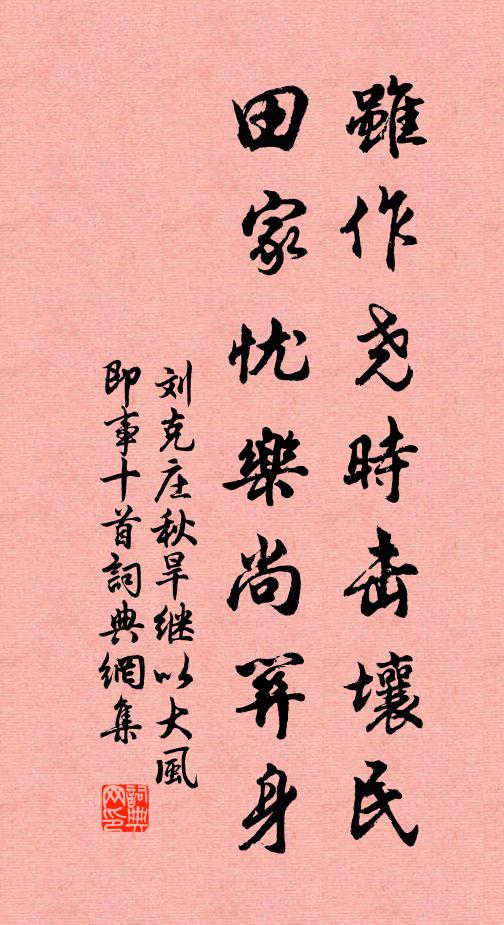 雖作尧時击壤民
田家忧樂尚関身
刘克庄秋旱继以大風
即事十首詞典網集
詞典
网印